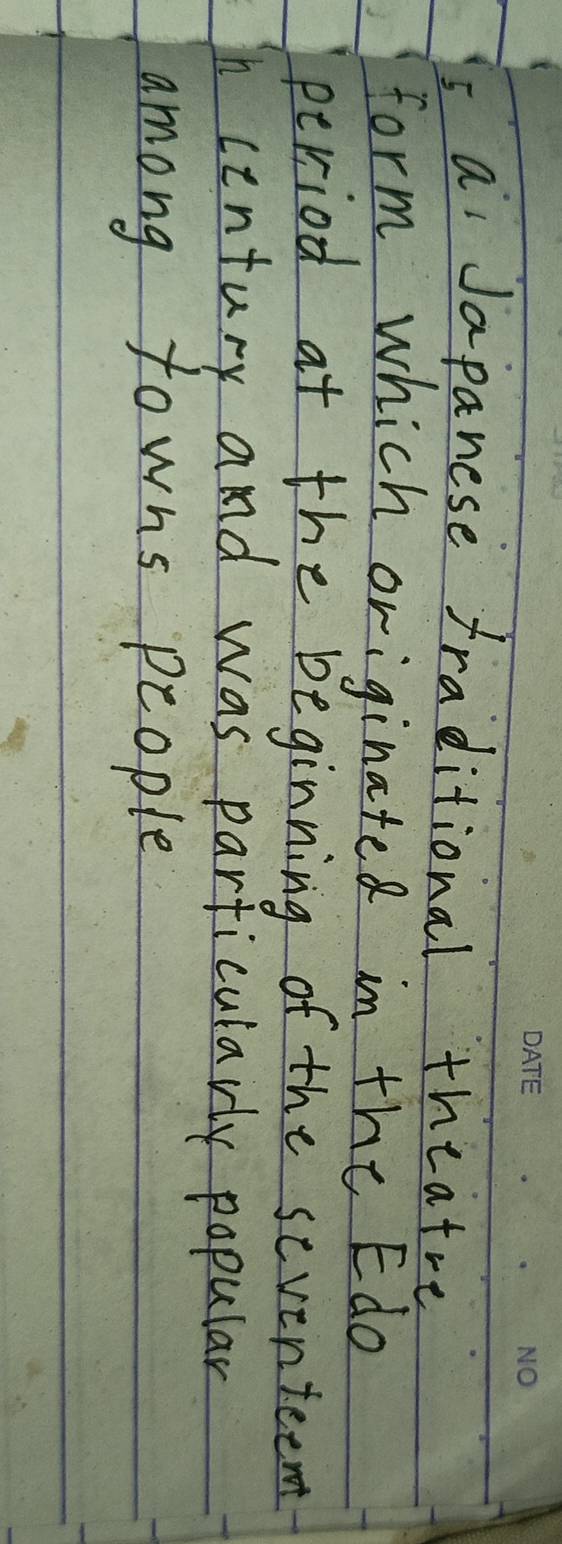 DATE
NO
5 a. Japanese traditional theatre
form which originated in the Edo
period at the beginning of the seventeent
h century and was particularly popular
among towns people